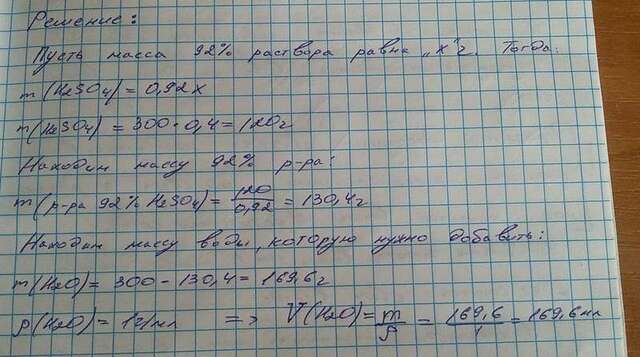 Решение:
Пусть масса 92% раствора равна "х" г. Тогда:
m(H2SO4) = 0,92х
m(H2SO4) = 300·0,4 = 120г
Находим массу 92% р-ра:
m(р-ра 92% H2SO4) = 120/0,92 = 130,4г
Находим массу воды, которую нужно добавить:
m(H2O) = 300 - 130,4 = 169,6г
ρ(H2O) = 1г/мл => V(H2O) = m/ρ = 169,6/1 = 169,6мл